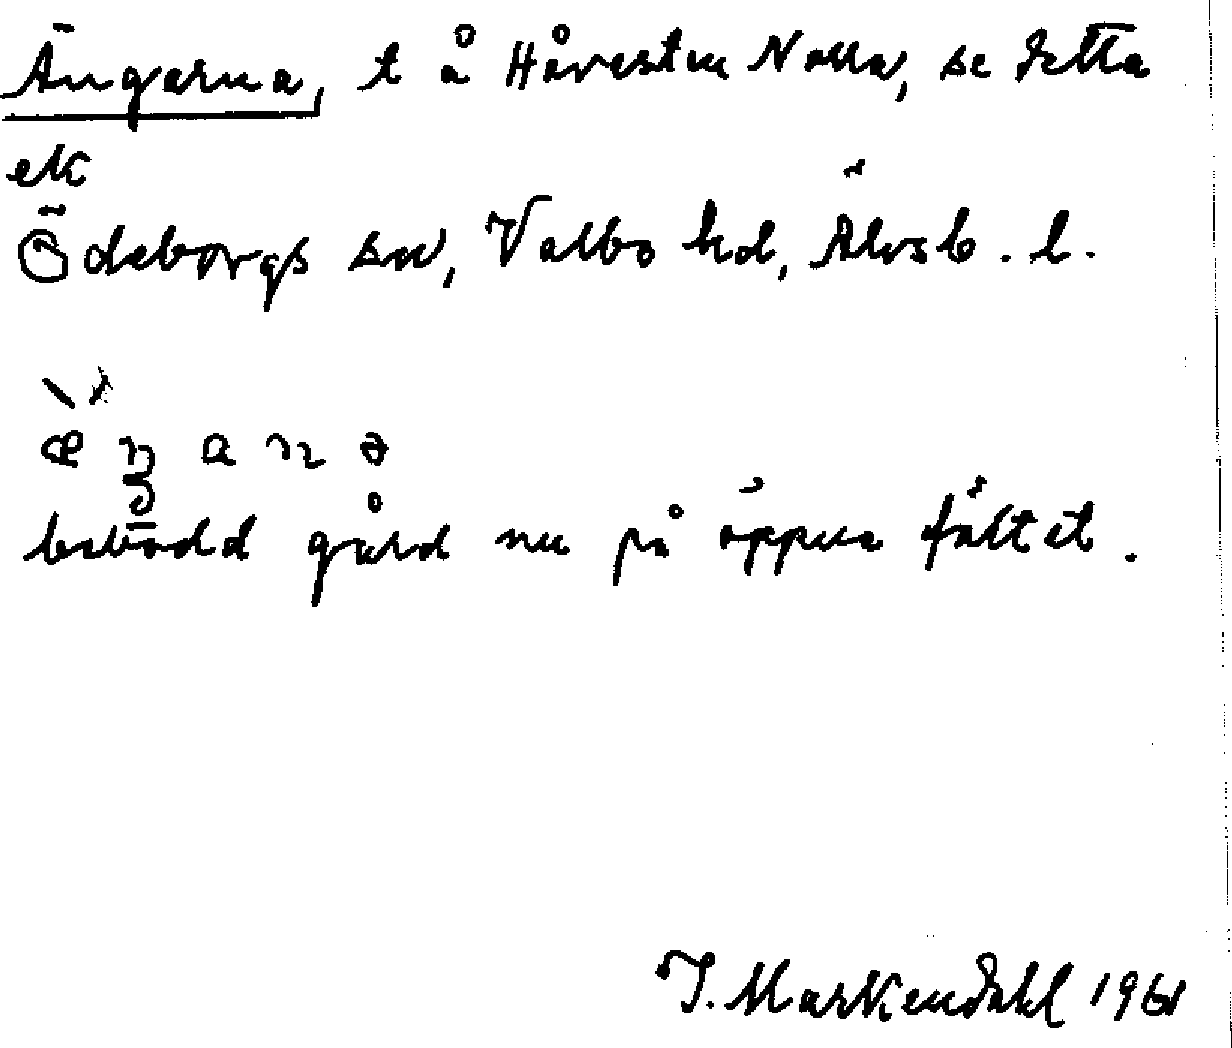 Ängarna, t å Håvesten Norra, se detta
ek
Ödeborgs sn, Valbo hd, Älvsb. l.
æŋanə
bebodd gård nu på öppna fältet.
J. Markendahl 1961